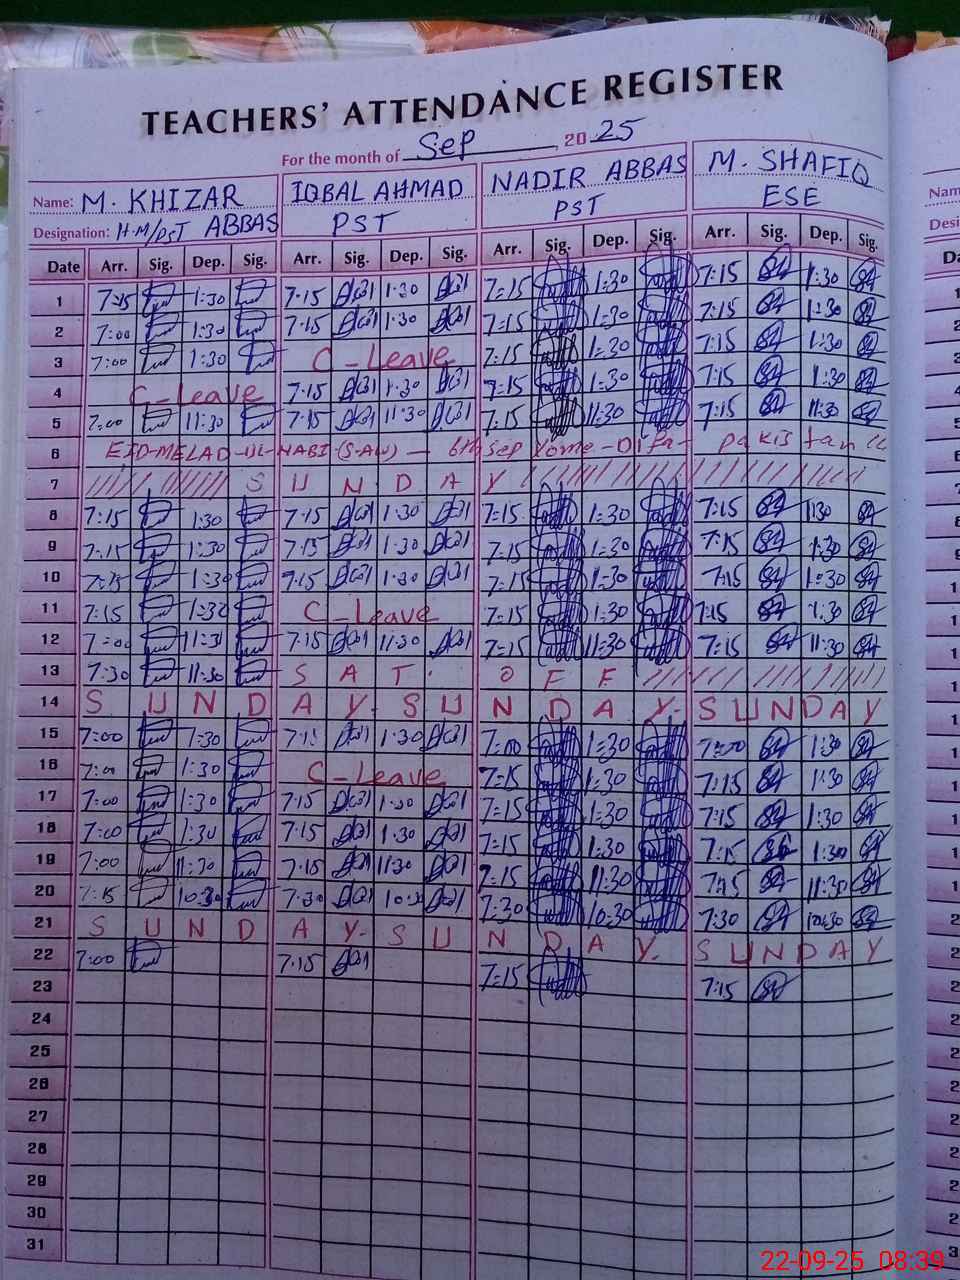 TEACHERS' ATTENDANCE REGISTER
For the month of Sep, 2025
Name: M. KHIZAR IQBAL AHMAD NADIR ABBAS M. SHAFIQ
Designation: H.M/PST ABBAS PST PST ESE
Date Arr. Sig. Dep. Sig. Arr. Sig. Dep. Sig. Arr. Sig. Dep. Sig. Arr. Sig. Dep. Sig.
1 7:15 1:30 7:15 1:30 7=15 1=30 7=15 1:30
2 7=00 1:30 7:15 1:30 7=15 1=30 7:15 1:30
3 7=00 1:30 C-Leave 7=15 1=30 7:15 1:30
4 C-Leave 7:15 1:30 7=15 1=30 7:15 1:30
5 7:00 11:30 7:15 11:30 7=15 11=30 7:15 11:30
6 EID-MELAD-UL-NABI (S.A.W) — 6th Sep Yome-Difa- pakistan
7 S U N D A Y
8 7:15 1:30 7:15 1:30 7=15 1=30 7:15 1:30
9 7:15 1:30 7:15 1:30 7=15 1=30 7=15 1:30
10 1:30 7:15 1:30 7=15 1=30 7:15 1=30
11 7:15 C-Leave 7=15 1=30 7:15 1:30
12 7=00 7:15 11:30 7=15 11=30 7:15 11:30
13 7:30 11:30 S A T. O F F
14 S U N D A Y. S U N D A Y. S U N D A Y
15 7:00 1:30 7=00 1=30 1:30
16 7:00 1:30 C-Leave 7=15 1=30 7:15 1:30
17 7:00 1:30 7:15 1:30 7=15 1=30 7:15 1:30
18 7:00 1:30 7:15 1:30 7=15 1=30 7:15 1:30
19 7:00 11:30 7:15 11:30 7=15 11=30 7:15 11:30
20 7:15 10:30 7:30 10:30 7:30 10=30 7:30 10:30
21 S U N D A Y. S U N D A Y. S U N D A Y
22 7:00 7:15 7=15 7:15
23
24
25
26
27
28
29
30
31
22-09-25 08:39